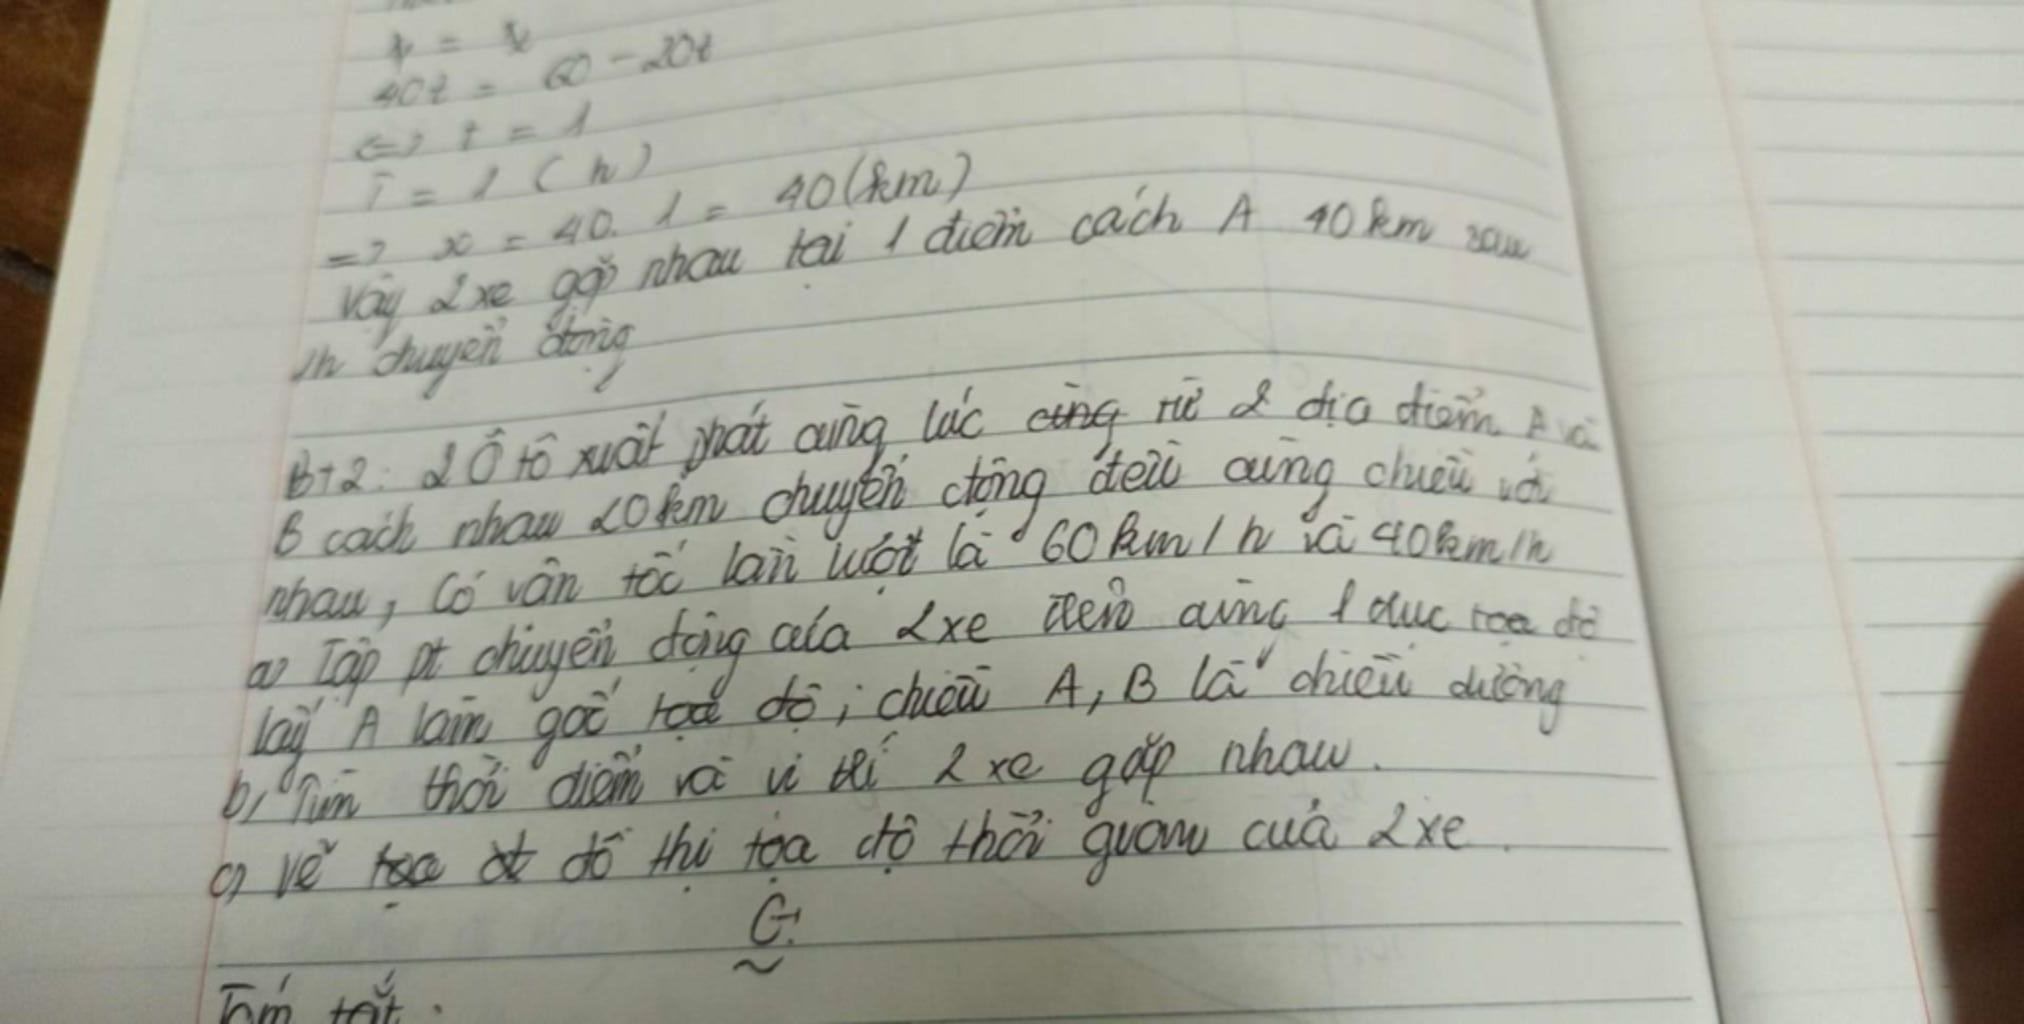 x = x
40t = 60 - 20t
<=> t = 1
T = 1 (h)
=> x = 40. 1 = 40 (km)
Vậy 2 xe gặp nhau tại 1 điểm cách A 40 km sau
1h chuyển động
BT2: 2 Ô tô xuất phát cùng lúc cùng từ 2 địa điểm A và
B cách nhau 20 km chuyển động đều cùng chiều với
nhau, Có vận tốc lần lượt là 60 km/h và 40 km/h
a) Lập pt chuyển động của 2 xe trên cùng 1 trục tọa độ
lấy A làm gốc tọa độ; chiều A, B là chiều dương
b, Tìm thời điểm và vị trí 2 xe gặp nhau.
c) vẽ tọa đồ thị tọa độ thời gian của 2 xe.
G:
Tóm tắt: